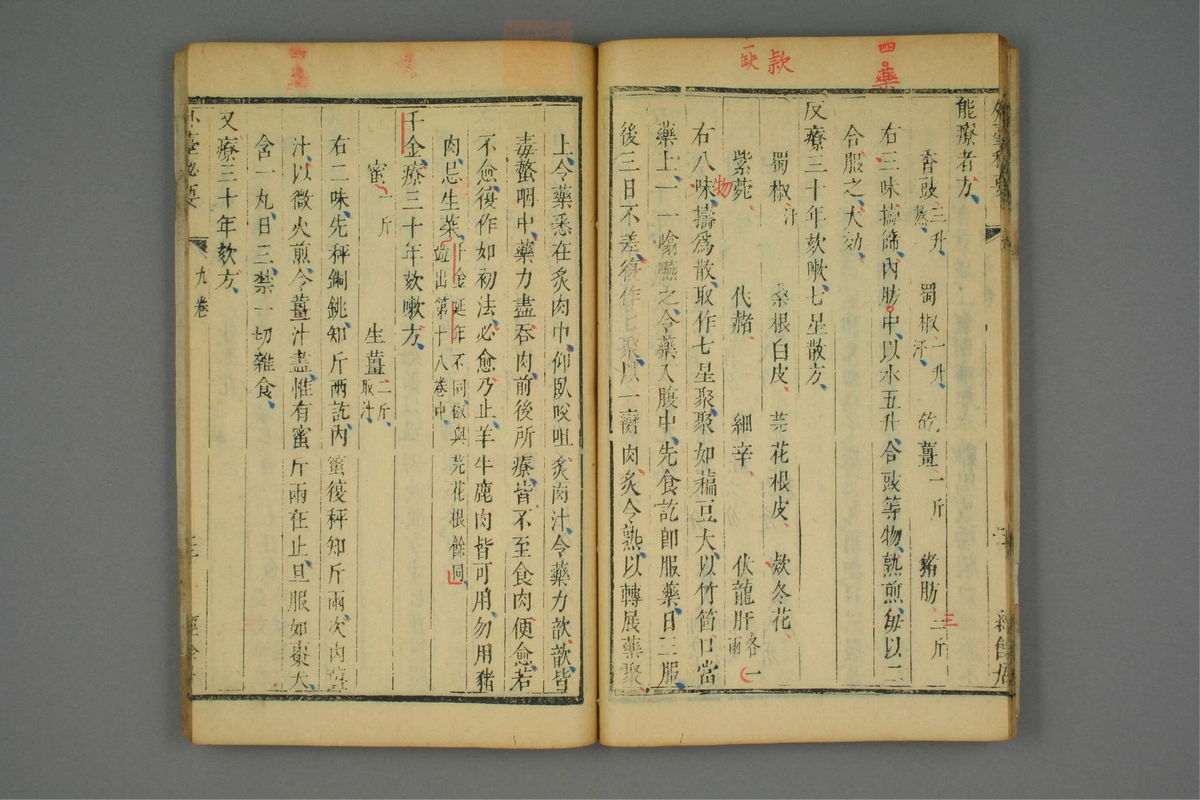 四 藥
款
一 欬
能療者方
香豉三升蒸 蜀椒一升汗 乾薑一斤 豬肪三斤
右三味擣篩內肪中以水五升合豉等物熟煎每以二
合服之大効
又療三十年欬嗽七星散方
蜀椒汁 桑根白皮 芫花根皮 款冬花
紫菀 代赭 細辛 伏龍肝各一兩
右八味物擣爲散取作七星聚聚如藊豆大以竹筒口當
藥上一一噏嚥之令藥入腹中先食訖卽服藥日二服
後三日不差復作七聚以一臠肉炙令熟以轉展藥聚
上令藥悉在炙肉中仰臥咬咀炙肉汁令藥力歆歆皆
毒螫咽中藥力盡吞肉前後所療皆不至食肉便愈若
不愈復作如初法必愈乃止羊牛鹿肉皆可用勿用豬
肉忌生菜千金延年不同椒與芫花根餘同並出第十八卷中
千金療三十年欬嗽方
蜜一斤 生薑二斤取汁
右二味先秤銅銚知斤兩訖內蜜復秤知斤兩次內薑
汁以微火煎令薑汁盡惟有蜜斤兩在止旦服如棗大
含一丸日三禁一切雜食
又療三十年欬方
外臺秘要 九卷 三 經